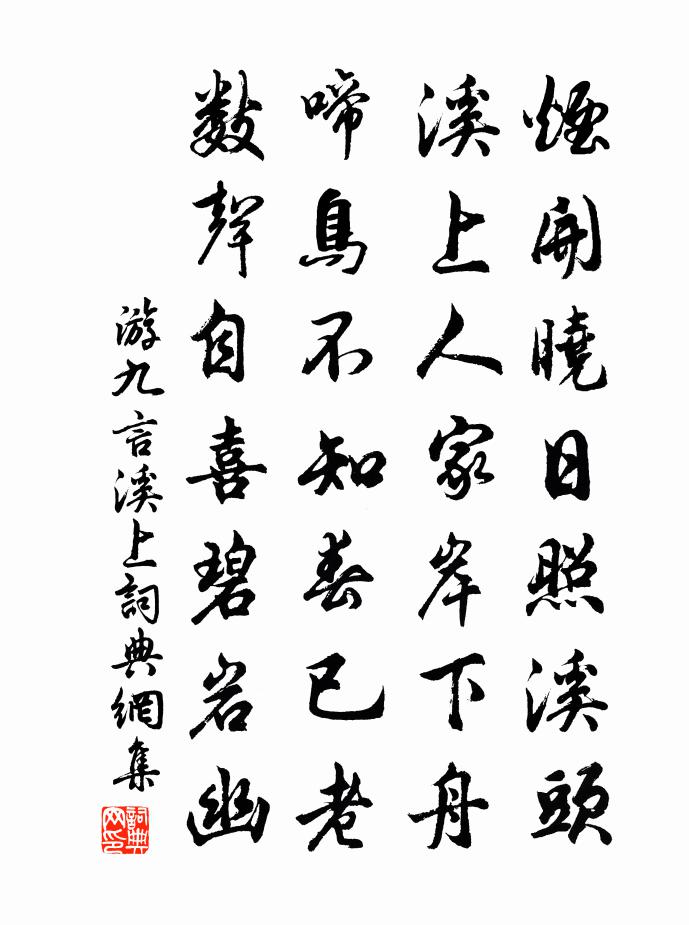 煙開曉日照溪頭
溪上人家岸下舟
啼鳥不知春已老
數聲自喜碧岩幽
游九言溪上詞典網集
詞典
网印